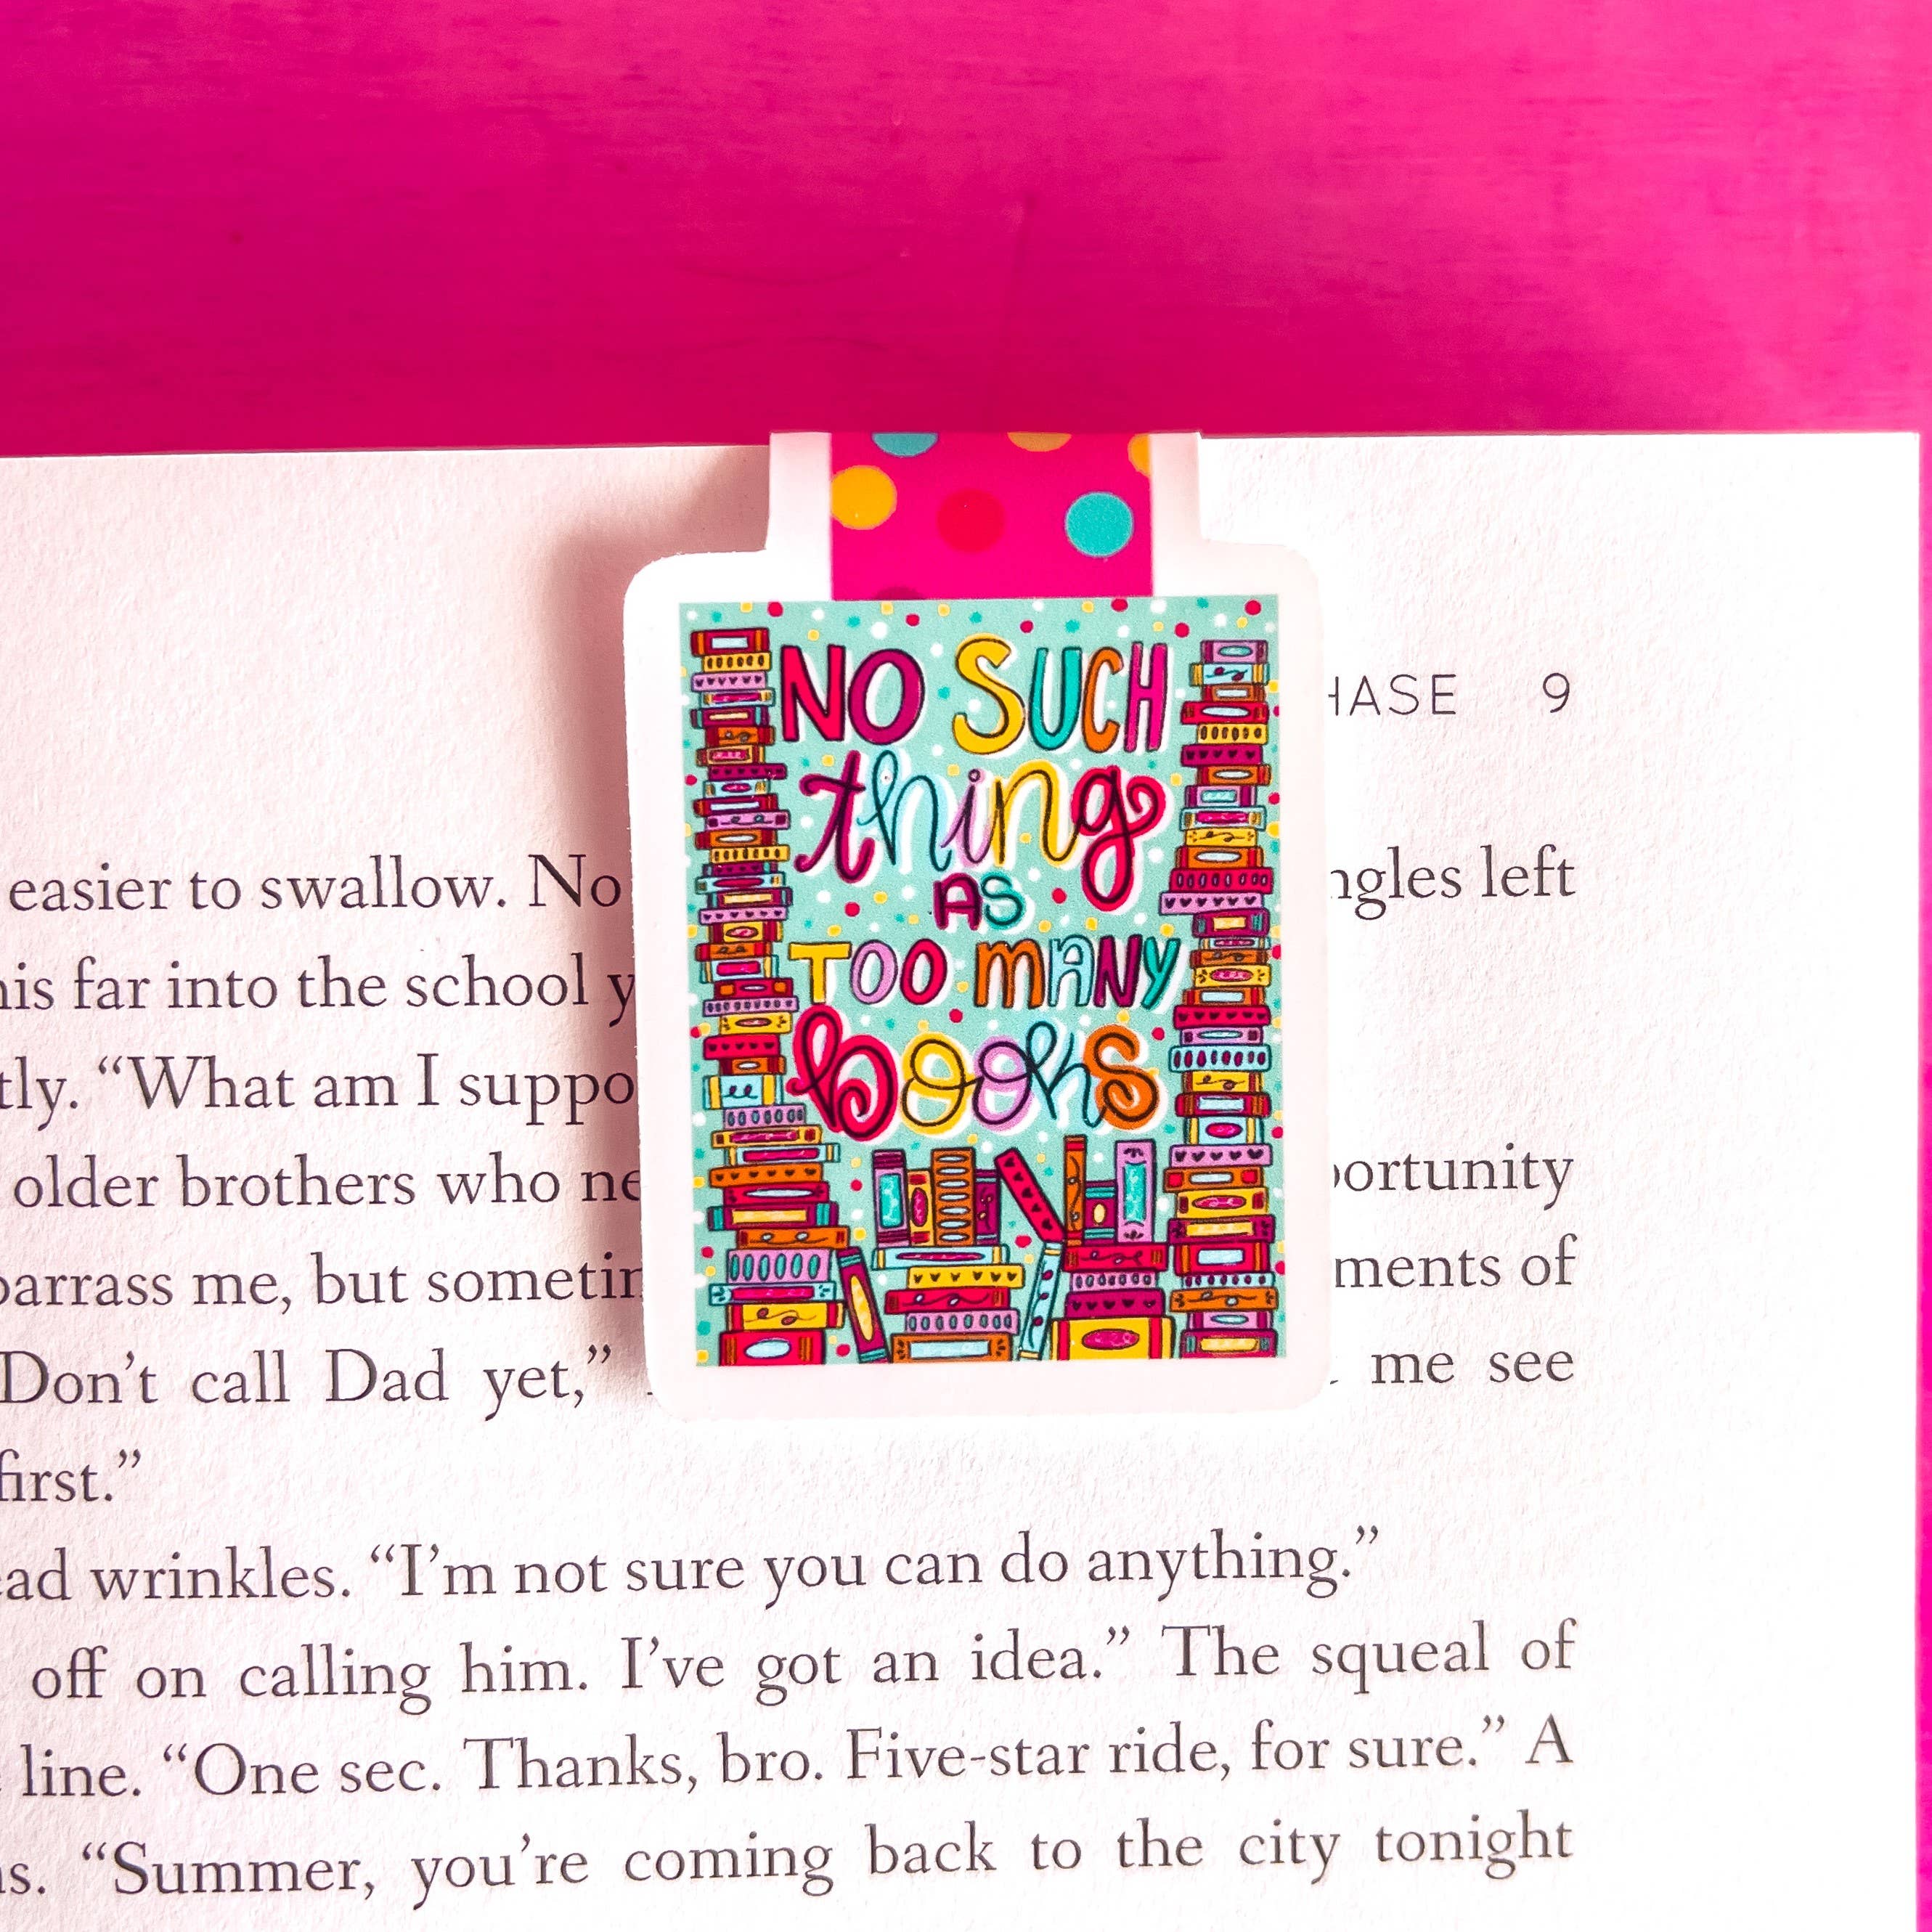 NO SUCH
thing
AS
TOO MANY
books
9
easier to swallow. No left
far into the school
“What am I
older brothers who
me, but of
Don’t call Dad yet,” me see
first.”
wrinkles. “I’m not sure you can do anything.”
off on calling him. I’ve got an idea.” The squeal of
line. “One sec. Thanks, bro. Five-star ride, for sure.” A
“Summer, you’re coming back to the city tonight